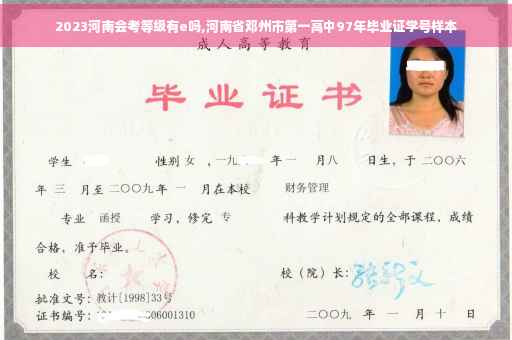 2023河南会考等级有e吗,河南省邓州市第一高中97年毕业证学号样本
成人高等教育
毕业证书
学生 性别 女 ,一九 年一 月八 日生，于二〇〇六
年 三 月至二〇〇九年 一 月在本校 财务管理
专业 函授 学习，修完 专 科教学计划规定的全部课程，成绩
合格，准予毕业。
校 名： 校（院）长：
批准文号：教计[1998]33号
证书编号： 06001310 二〇〇九 年 一 月 十 日